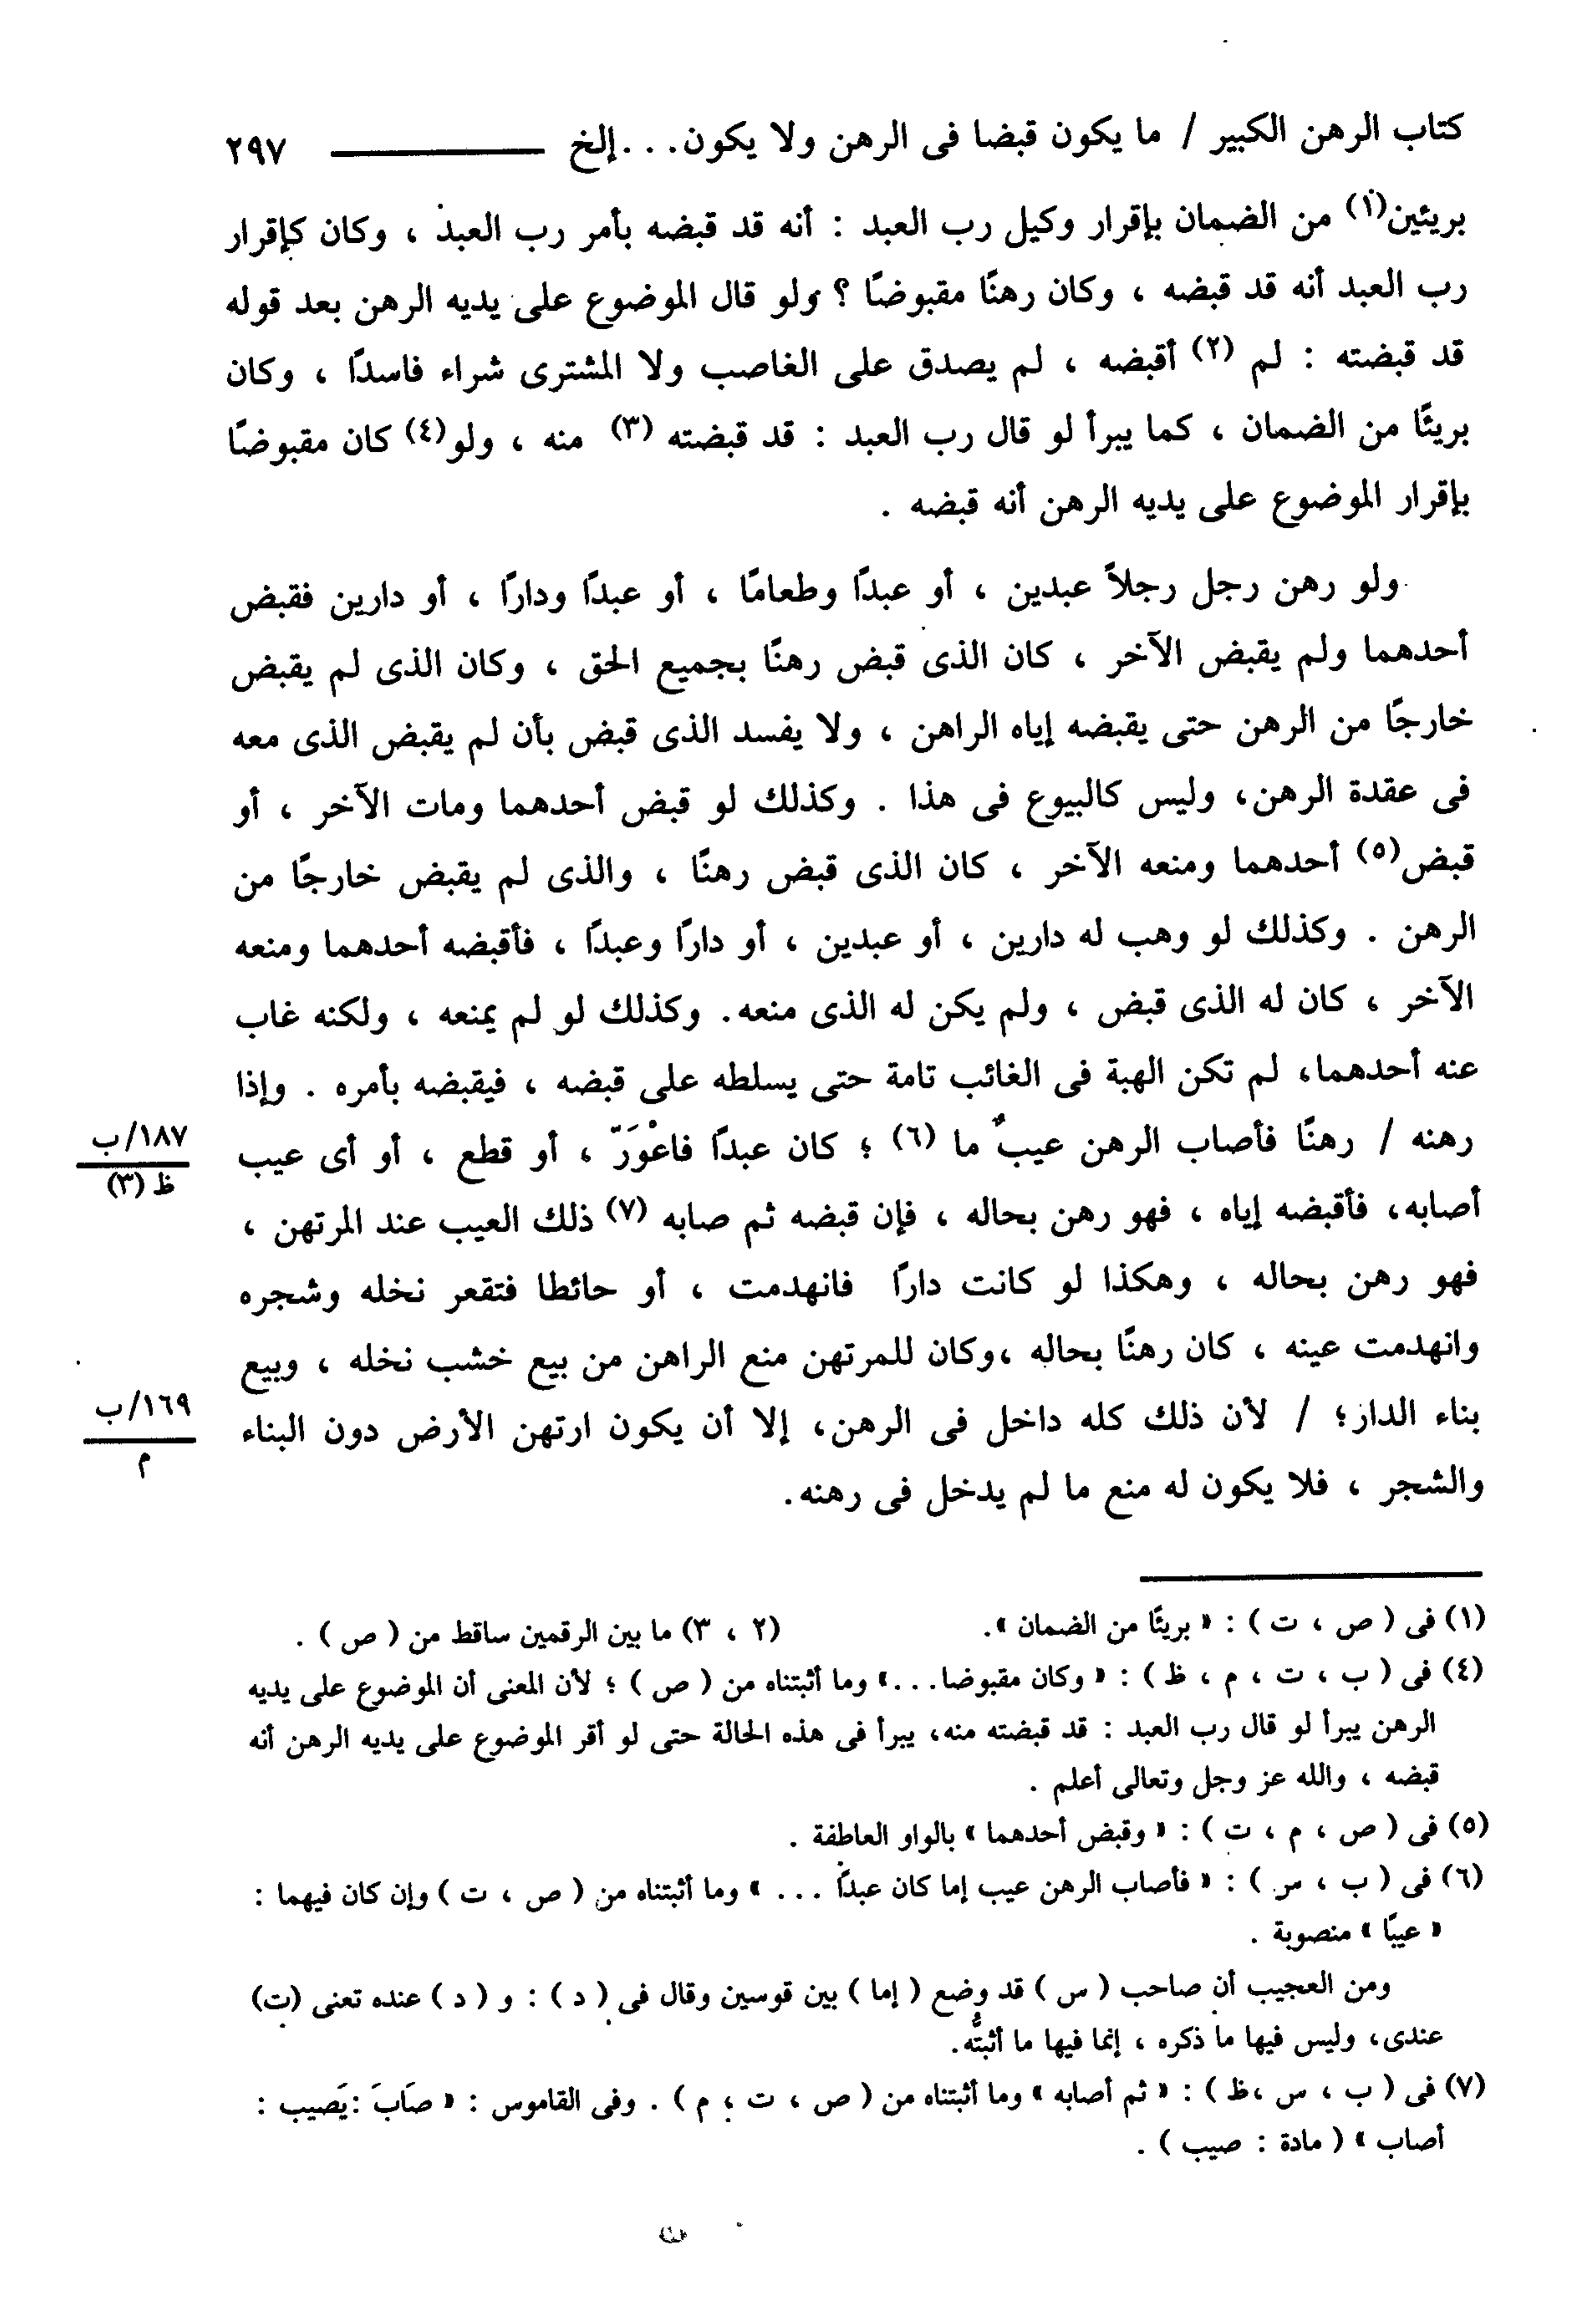 كتاب الرهن الكبير / ما يكون قبضا فى الرهن ولا يكون. . . إلخ ــــــــــــ ٢٩٧
بريئين(١) من الضمان بإقرار وكيل رب العبد : أنه قد قبضه بأمر رب العبد ، وكان كإقرار
رب العبد أنه قد قبضه ، وكان رهنًا مقبوضًا ؟ ولو قال الموضوع على يديه الرهن بعد قوله
قد قبضته : لم (٢) أقبضه ، لم يصدق على الغاصب ولا المشترى شراء فاسدًا ، وكان
بريئًا من الضمان ، كما يبرأ لو قال رب العبد : قد قبضته (٣) منه ، ولو(٤) كان مقبوضًا
بإقرار الموضوع على يديه الرهن أنه قبضه .
ولو رهن رجل رجلاً عبدين ، أو عبدًا وطعامًا ، أو عبدًا ودارًا ، أو دارين فقبض
أحدهما ولم يقبض الآخر ، كان الذى قبض رهنًا بجميع الحق ، وكان الذى لم يقبض
خارجًا من الرهن حتى يقبضه إياه الراهن ، ولا يفسد الذى قبض بأن لم يقبض الذى معه
فى عقدة الرهن، وليس كالبيوع فى هذا . وكذلك لو قبض أحدهما ومات الآخر ، أو
قبض(٥) أحدهما ومنعه الآخر ، كان الذى قبض رهنًا ، والذى لم يقبض خارجًا من
الرهن . وكذلك لو وهب له دارين ، أو عبدين ، أو دارًا وعبدًا ، فأقبضه أحدهما ومنعه
الآخر ، كان له الذى قبض ، ولم يكن له الذى منعه. وكذلك لو لم يمنعه ، ولكنه غاب
عنه أحدهما، لم تكن الهبة فى الغائب تامة حتى يسلطه على قبضه ، فيقبضه بأمره . وإذا
رهنه / رهنًا فأصاب الرهن عيبٌ ما (٦) ؛ كان عبدًا فاعْوَرّ ، أو قطع ، أو أى عيب
١٨٧/ب
ظ (٣)
أصابه، فأقبضه إياه ، فهو رهن بحاله ، فإن قبضه ثم صابه (٧) ذلك العيب عند المرتهن ،
فهو رهن بحاله ، وهكذا لو كانت دارًا فانهدمت ، أو حائطا فتقعر نخله وشجره
وانهدمت عينه ، كان رهنًا بحاله ،وكان للمرتهن منع الراهن من بيع خشب نخله ، وبيع
بناء الدار؛ / لأن ذلك كله داخل فى الرهن، إلا أن يكون ارتهن الأرض دون البناء
١٦٩/ب
م
والشجر ، فلا يكون له منع ما لم يدخل فى رهنه.
(١) فى ( ص ، ت ) : « بريئًا من الضمان ». (٢ ، ٣) ما بين الرقمين ساقط من ( ص ) .
(٤) فى ( ب ، ت ، م ، ظ ) : « وكان مقبوضا. . .» وما أثبتناه من ( ص ) ؛ لأن المعنى أن الموضوع على يديه
الرهن يبرأ لو قال رب العبد : قد قبضته منه، يبرأ فى هذه الحالة حتى لو أقر الموضوع على يديه الرهن أنه
قبضه ، والله عز وجل وتعالى أعلم .
(٥) فى ( ص ، م ، ت ) : « وقبض أحدهما » بالواو العاطفة .
(٦) فى ( ب ، س ) : « فأصاب الرهن عيب إما كان عبدًا . . . » وما أثبتناه من ( ص ، ت ) وإن كان فيهما :
« عيبًا » منصوبة .
ومن العجيب أن صاحب ( س ) قد وضع ( إما ) بين قوسين وقال فى ( د ) : و ( د ) عنده تعنى (ت)
عندى، وليس فيها ما ذكره ، إنما فيها ما أثبتُّه.
(٧) فى ( ب ، س ،ظ ) : « ثم أصابه » وما أثبتناه من ( ص ، ت ، م ) . وفى القاموس : « صَابَ :يَصيب :
أصاب » ( مادة : صيب ) .